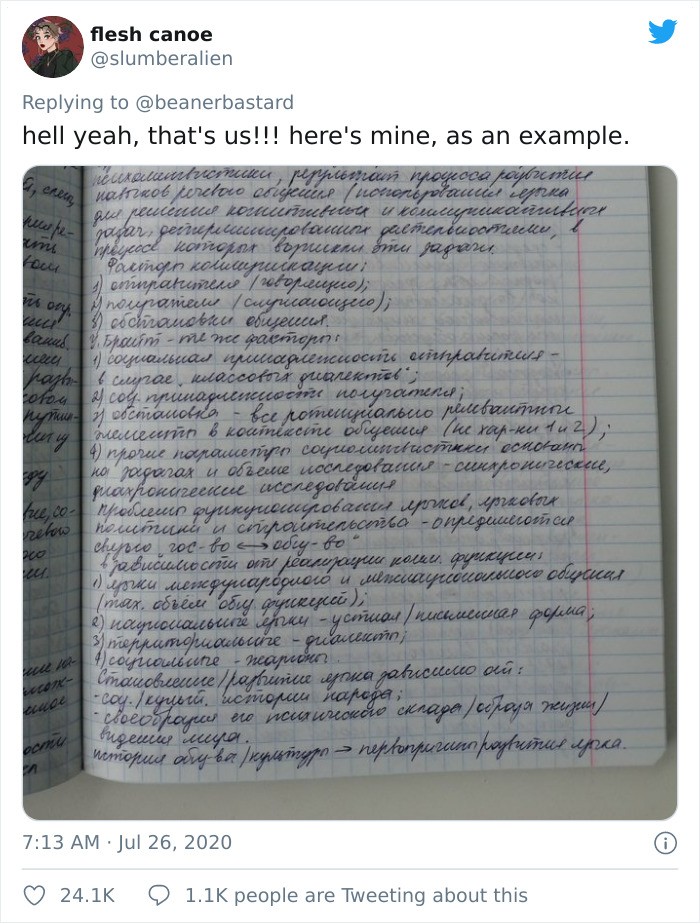 flesh canoe
@slumberalien
Replying to @beanerbastard
hell yeah, that's us!!! here's mine, as an example.
психолингвистики, результат процесса развития
навыков речевого общения (использования языка
для решения когнитивных и коммуникативных
задач, детерминированных деятельностями, в
процессе которых возникли эти задачи.
Факторы коммуникации:
1) отправителя (говорящего);
2) получателя (слушающего);
3) обстановки общения.
У. Брайт - те же факторы:
1) социальная принадлежность отправителя -
в случае "классовых диалектов";
2) соц. принадлежности получателя;
3) обстановка - все потенциально релевантные
элементы в контексте общения (не хар-ки 1 и 2);
4) прочие параметры социолингвистики основаны
на задачах и объёме исследования - синхронические,
диахронические исследования
Проблемы функционирования языков, языковых
политики и строительства - определяются
сверху "гос-во ⟷ общ-во"
в зависимости от реализации комм. функции:
1) языки международного и межнационального общения
(max. объём общ. функций);
2) национальные языки - устная/письменная форма;
3) территориальные - диалекты;
4) социальные - жаргоны.
Становление/развитие языка зависимо от:
- соц./культ. истории народа;
- своеобразия его психического склада/образа жизни/
видения мира.
история общ-ва/культуры → первопричины развития языка.
7:13 AM · Jul 26, 2020
24.1K 1.1K people are Tweeting about this